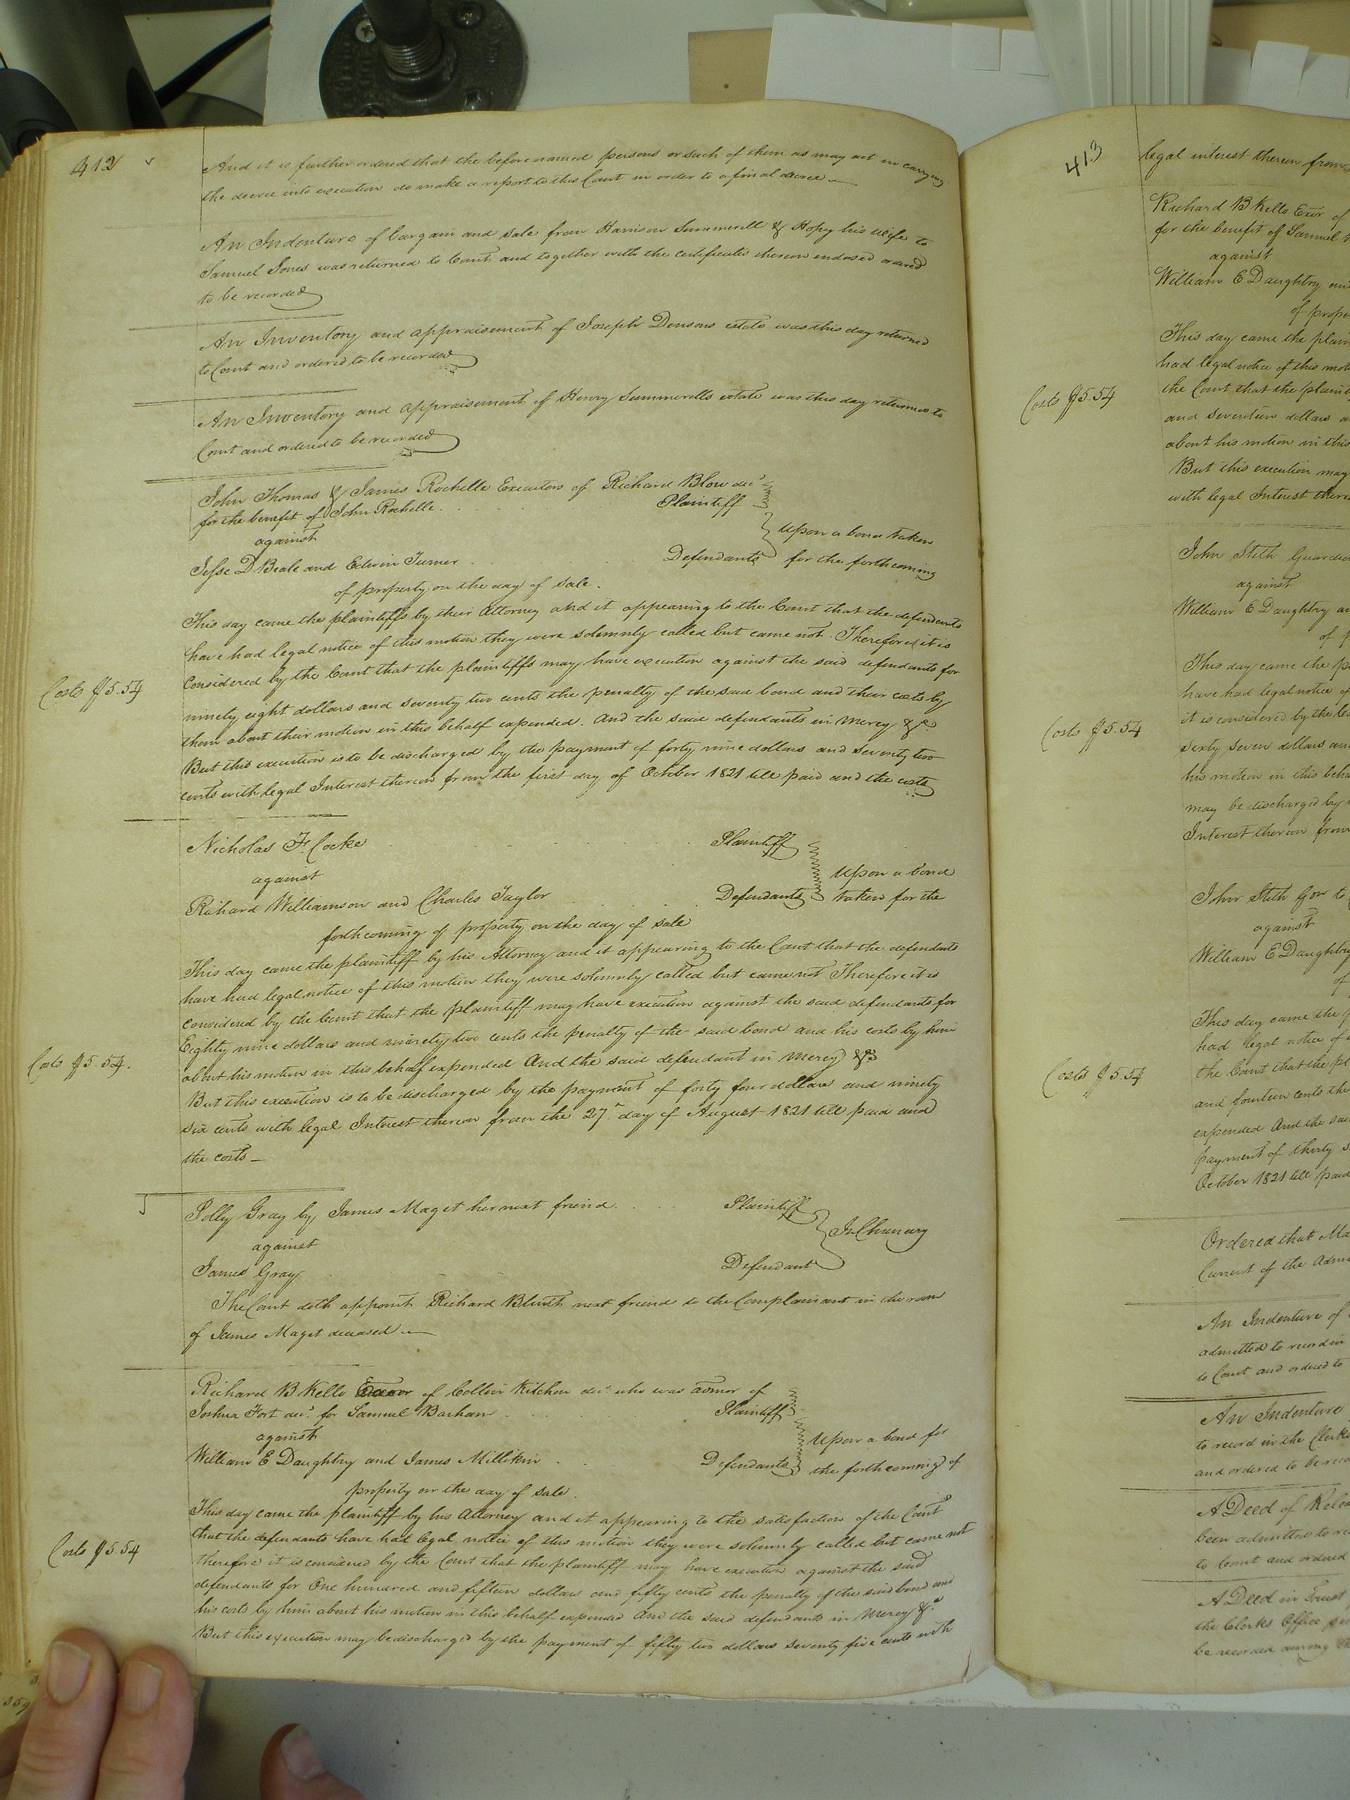 412
And it is further ordered that the before named persons or such of them as may act in carrying
the decree into execution do make a report to this Court in order to a final decree
An Indenture of bargain and sale from Harrison Summerell & Hopy his wife to
Samuel Jones was returned to Court and together with the certificate thereon endorsed
to be recorded
An Inventory and appraisement of Joseph Densons estate was this day returned
to Court and ordered to be recorded
An Inventory and appraisement of Henry Summerells estate was this day returned to
Court and ordered to be recorded
John Thomas & James Rochelle Executors of Richard Blow decd
for the benefit of John Rochelle Plaintiff
against Upon a bond taken
Jesse D Beale and Edwin Turner Defendants for the forthcoming
of property on the day of sale.
This day came the plaintiffs by their Attorney and it appearing to the Court that the defendants
have had legal notice of this motion they were solemnly called but came not. Therefore it is
Considered by the Court that the plaintiffs may have execution against the said defendants for
Costs $5.54
ninety eight dollars and seventy two cents the penalty of the said bond and their costs by
them about their motion in this behalf expended. And the said defendants in mercy &c
But this execution is to be discharged by the payment of forty nine dollars and seventy two
cents with legal Interest thereon from the first day of October 1821 till paid and the costs
Nicholas F. Cocke Plaintiff
against Upon a bond
Richard Williamson and Charles Taylor Defendants taken for the
forthcoming of property on the day of sale
This day came the plaintiff by his Attorney and it appearing to the Court that the defendants
have had legal notice of this motion they were solemnly called but came not Therefore it is
considered by the Court that the plaintiff may have execution against the said defendants for
Eighty nine dollars and ninety two cents the penalty of the said bond and his costs by him
Costs $5.54.
about his motion in this behalf expended And the said defendant in mercy &c
But this execution is to be discharged by the payment of forty four dollars and ninety
six cents with legal Interest thereon from the 27th day of August 1821 till paid and
the costs
Polly Gray by James Maget her next friend Plaintiff
against In Chancery
James Gray Defendant
The Court doth appoint Richard Blunt next friend to the Complainant in the room
of James Maget deceased
Richard B Kello Exor of Collin Kitchen decd who was admor of
Joshua Fort decd for Samuel Barham Plaintiff
against Upon a bond for
William E Daughtry and James Millikin Defendants the forthcoming of
property on the day of sale.
This day came the plaintiff by his Attorney and it appearing to the satisfaction of the Court
that the defendants have had legal notice of this motion they were solemnly called but came not
Costs $5.54
therefore it is considered by the Court that the plaintiff may have execution against the said
defendants for One hundred and fifteen dollars and fifty cents the penalty of the said bond and
his costs by him about his motion in this behalf expended And the said defendants in Mercy &c
But this execution may be discharged by the payment of fifty two dollars seventy five cents with
413
legal interest thereon from
Richard B Kello Exor of
for the benefit of Samuel
against
William E Daughtry
of
This day came the
had legal notice of this
Costs $5.54
the Court that the
and seventeen dollars
about his motion in this
But this execution may
with legal Interest
John Stith Guardian
against
William E Daughtry
of
This day came the
have had legal notice of
Costs $5.54
it is considered by the
sixty seven dollars
his motion in this
may be discharged by
Interest thereon from
John Stith
against
William E Daughtry
of
This day came the
had legal notice of
Costs $5.54
the Court that the
and fourteen cents the
expended And the
payment of thirty
October 1821 till paid
Ordered that
Current of the
An Indenture of
admitted to record in
to Court and ordered to
An Indenture
to record in the Clerks
and ordered to be
A Deed of
been admitted to
to Court and ordered
A Deed in Trust
the Clerks Office
be recorded among